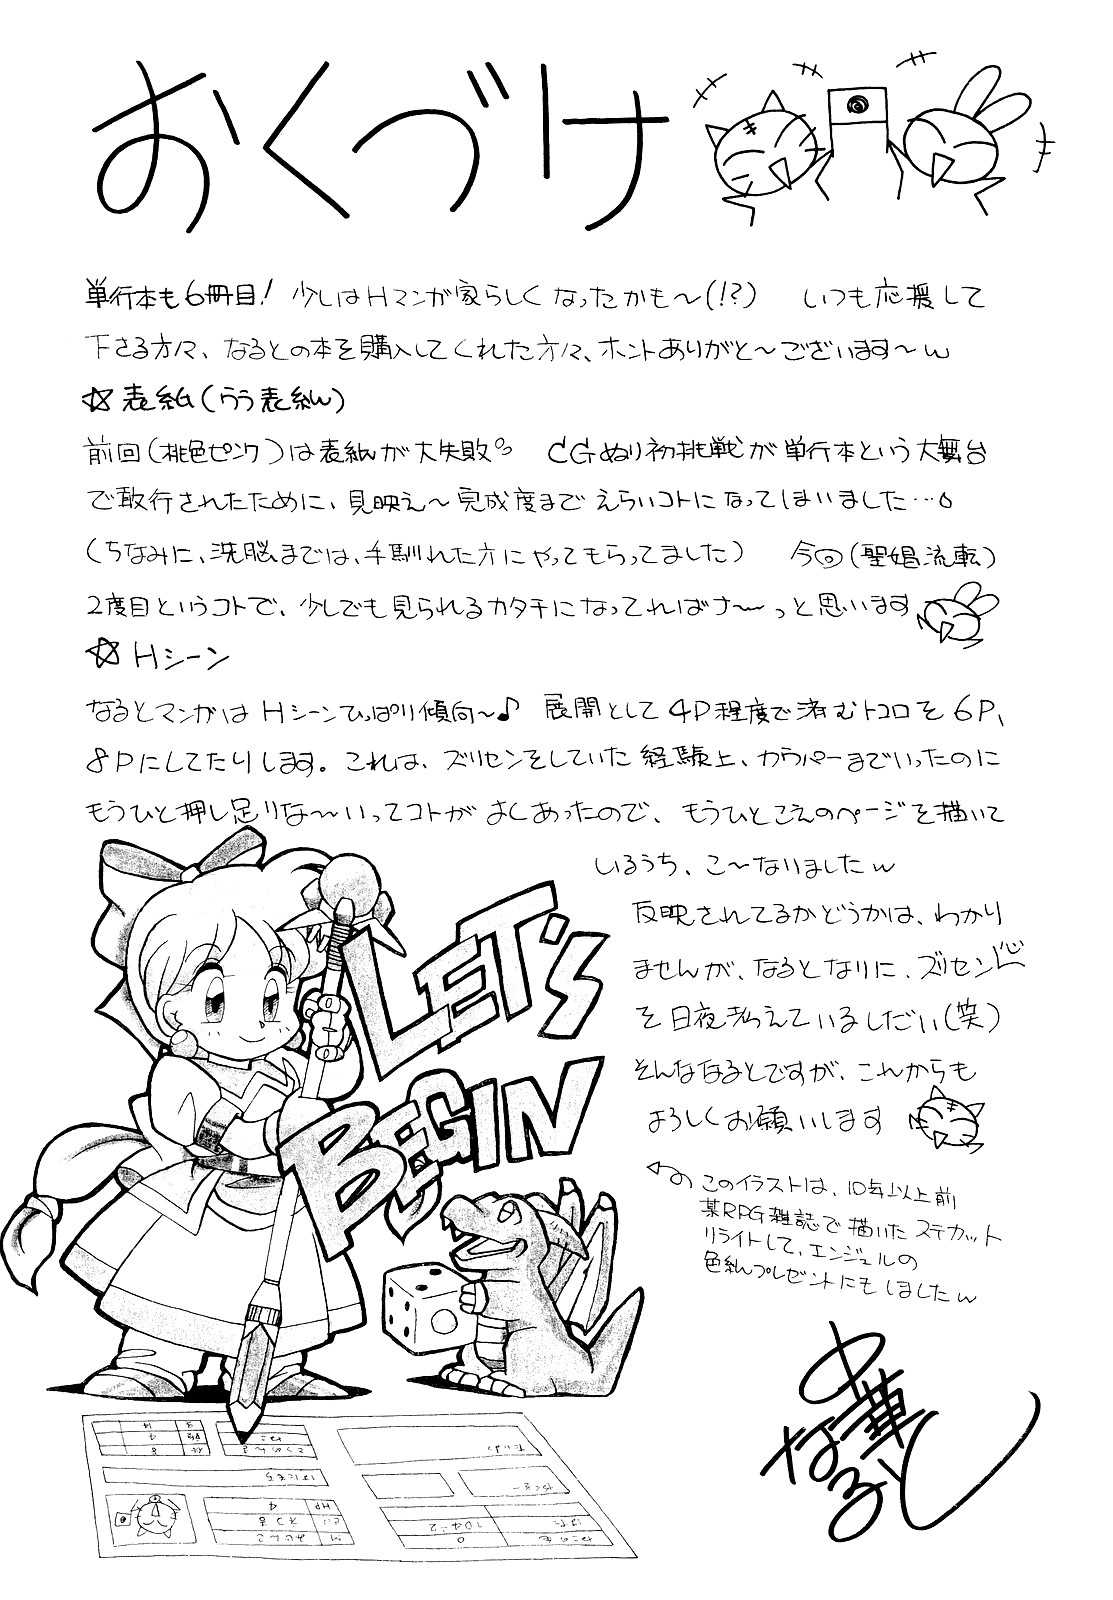 おくづけ
単行本も6冊目! 少しはHマンガ家らしくなったかも〜(!?) いつも応援して
下さる方々、なるとの本を購入してくれた方々、ホントありがと〜ございます〜w
☆表紙(うら表紙)
前回(桃色ピンク)は表紙が大失敗 CGぬり初挑戦が単行本という大舞台
で敢行されたために、見映え〜完成度までえらいコトになってしまいました…
(ちなみに、洗脳までは、手馴れた方にやってもらってました) 今回(聖娼流転)
2度目というコトで、少しでも見られるカタチになってればナ〜っと思います
☆Hシーン
なるとマンガはHシーンひっぱり傾向〜♪ 展開として4P程度で済むトコロを6P、
8Pにしてたりします。これは、ズリセンをしていた経験上、カウパーまでいったのに
もうひと押し足りな〜いってコトがよくあったので、もうひとこえのページを描いて
いるうち、こ〜なりましたw
反映されてるかどうかは、わかり
ませんが、なるとなりに、ズリセン
を日夜考えているしだい(笑)
そんななるとですが、これからも
よろしくお願いします
このイラストは、10年以上前
某RPG雑誌で描いたステカット
リライトして、エンジェルの
色紙プレゼントにもしましたw
LET'S
BEGIN
中華
なると